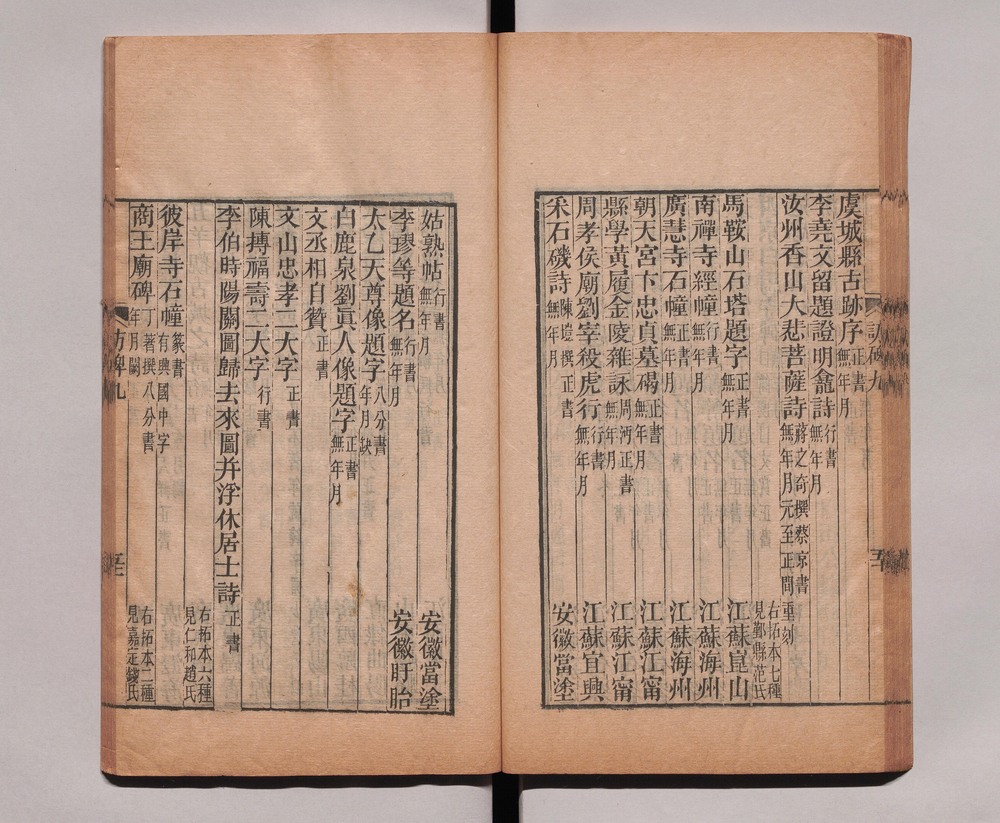 虞城縣古跡序 正書 無年月
李堯文留題證明龕詩 行書 無年月
汝州香山大悲菩薩詩 蔣之奇撰蔡京書 無年月元至正間 重刻
右拓本七種 見鄞縣范氏
馬鞍山石塔題字 正書 無年月 江蘇崑山
南禪寺經幢 行書 無年月 江蘇海州
廣慧寺石幢 正書 無年月 江蘇海州
朝天宮卞忠貞墓碣 正書 無年月 江蘇江甯
縣學黃履金陵雜詠 周沔正書 無年月 江蘇江甯
周孝侯廟劉宰殺虎行 行書 無年月 江蘇宜興
采石磯詩 陳垲撰正書 無年月 安徽當塗
姑熟帖 行書 無年月 安徽當塗
李璆等題名 行書 無年月 安徽盱眙
太乙天尊像題字 八分書 年月缺
白鹿泉劉眞人像題字 正書 無年月
文丞相自贊 正書
文山忠孝二大字 正書
陳摶福壽二大字 行書
李伯時陽關圖歸去來圖并浮休居士詩 正書
右拓本六種 見仁和趙氏
彼岸寺石幢 篆書 有興國中字
商王廟碑 丁著撰八分書 年月闕
右拓本二種 見嘉定錢氏
訪碑九